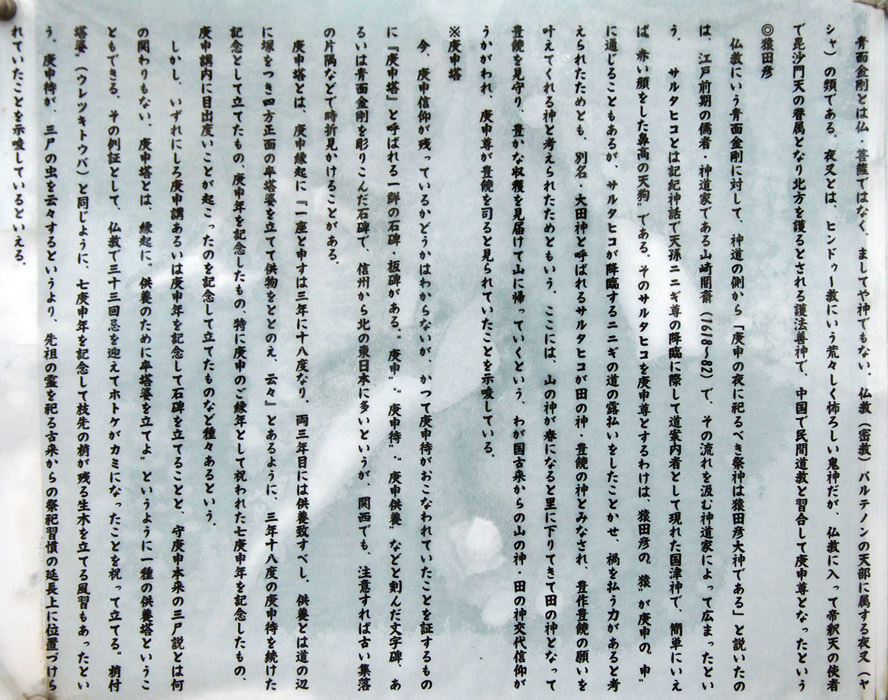 青面金剛とは仏・菩薩ではなく、ましてや神でもない。仏教（密教）パルテノンの天部に属する夜叉（ヤ
シャ）の類である。夜叉とは、ヒンドゥー教にいう荒々しく怖ろしい鬼神だが、仏教に入って帝釈天の使者
で毘沙門天の眷属となり北方を護るとされる護法善神で、中国で民間道教と習合して庚申尊となったという
◎猿田彦
仏教にいう青面金剛に対して、神道の側から「庚申の夜に祀るべき祭神は猿田彦大神である」と説いたの
は、江戸前期の儒者・神道家である山崎闇齋（1618～82）で、その流れを汲む神道家によって広まったとい
う。 サルタヒコとは記紀神話で天孫ニニギ尊の降臨に際して道案内者として現れた国津神で、簡単にいえ
ば〝赤い顔をした鼻高の天狗〟である。そのサルタヒコを庚申尊とするわけは、猿田彦の〝猿〟が庚申の〝申〟
に通じることもあるが、サルタヒコが降臨するニニギの道の露払いをしたことかせ、禍を払う力があると考
えられたためとも、別名・大田神と呼ばれるサルタヒコが田の神・豊饒の神とみなされ、豊作豊饒の願いを
叶えてくれる神と考えられたためともいう。ここには、山の神が春になると里に下りてきて田の神となって
豊饒を見守り、豊かな収穫を見届けて山に帰っていくという、わが国古来からの山の神・田の神交代信仰が
うかがわれ、庚申尊が豊饒を司ると見られていたことを示唆している。
※庚申塔
今、庚申信仰が残っているかどうかはわからないが、かつて庚申待がおこなわれていたことを証するもの
に『庚申塔』と呼ばれる一群の石碑・板碑がある。〝庚申〟・〝庚申待〟・〝庚申供養〟などと刻んだ文字碑、あ
るいは青面金剛を彫りこんだ石碑で、信州から北の東日本に多いというが、関西でも、注意すれば古い集落
の片隅などで時折見かけることがある。
庚申塔とは、庚申縁起に『一座と申すは三年に十八度なり。両三年目には供養致すべし。供養とは道の辺
に塚をつき四方正面の卒塔婆を立てて供物をととのえ、云々』とあるように、三年十八度の庚申待を続けた
記念として立てたもの、庚申年を記念したもの、特に庚申のご縁年として祝われた七庚申年を記念したもの、
庚申講内に目出度いことが起こったのを記念して立てたものなど種々あるという。
しかし、いずれにしろ庚申講あるいは庚申年を記念して石碑を立てることと、守庚申本来の三尸説とは何
の関わりもない。庚申塔とは、縁起に〝供養のために卒塔婆を立てよ〟というように一種の供養塔というこ
ともできる。その例証として、仏教で三十三回忌を迎えてホトケがカミになったことを祝って立てる〝梢付
塔婆〟（ウレツキトウバ）と同じように、七庚申年を記念して枝先の梢が残る生木を立てる風習もあったとい
う。庚申待が、三尸の虫を云々するというより、先祖の霊を祀る古来からの祭祀習慣の延長上に位置づけら
れていたことを示唆しているといえる。